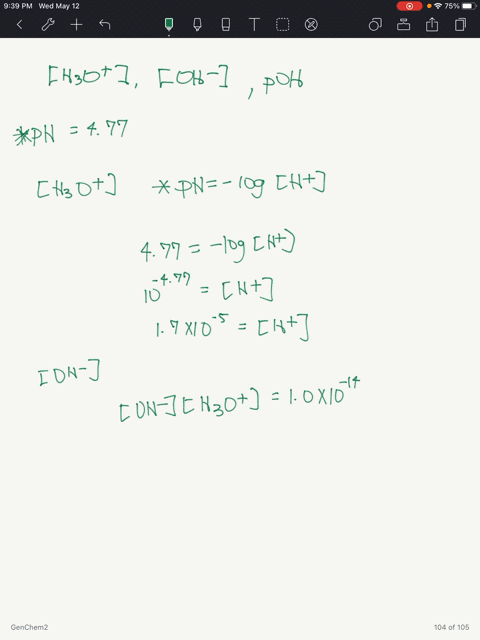 9:39 PM Wed May 12 75%
[H₃O⁺], [OH−], pOH
*pH = 4.77
[H₃O⁺] *pH = −log [H+]
4.77 = −log [H+)
10⁻⁴·⁷⁷ = [H+]
1.7 X 10⁻⁵ = [H+]
[OH−]
[OH−][H₃O⁺] = 1.0 X 10⁻¹⁴
GenChem2 104 of 105